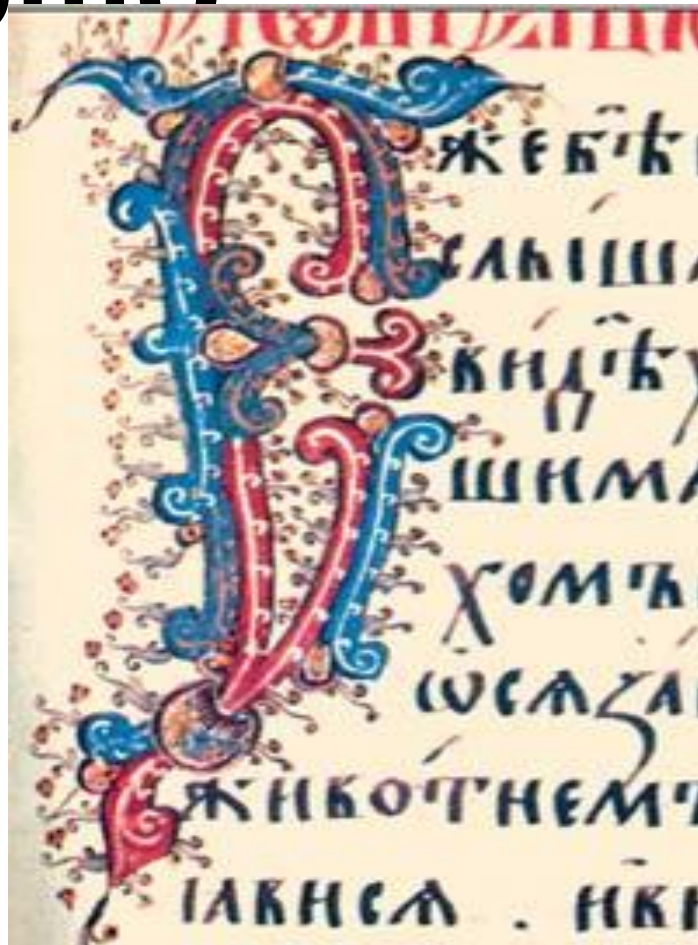 Єжебѣ
слыша
видѣ
шима
хомъ
ѡсѧза
животнемъ
ꙗвисѧ . ив